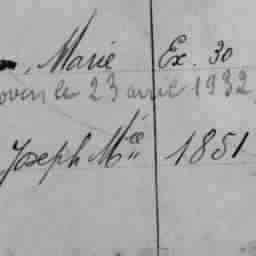 Marie Ex. 30
le 23 avril 1932
Joseph Mie 1851